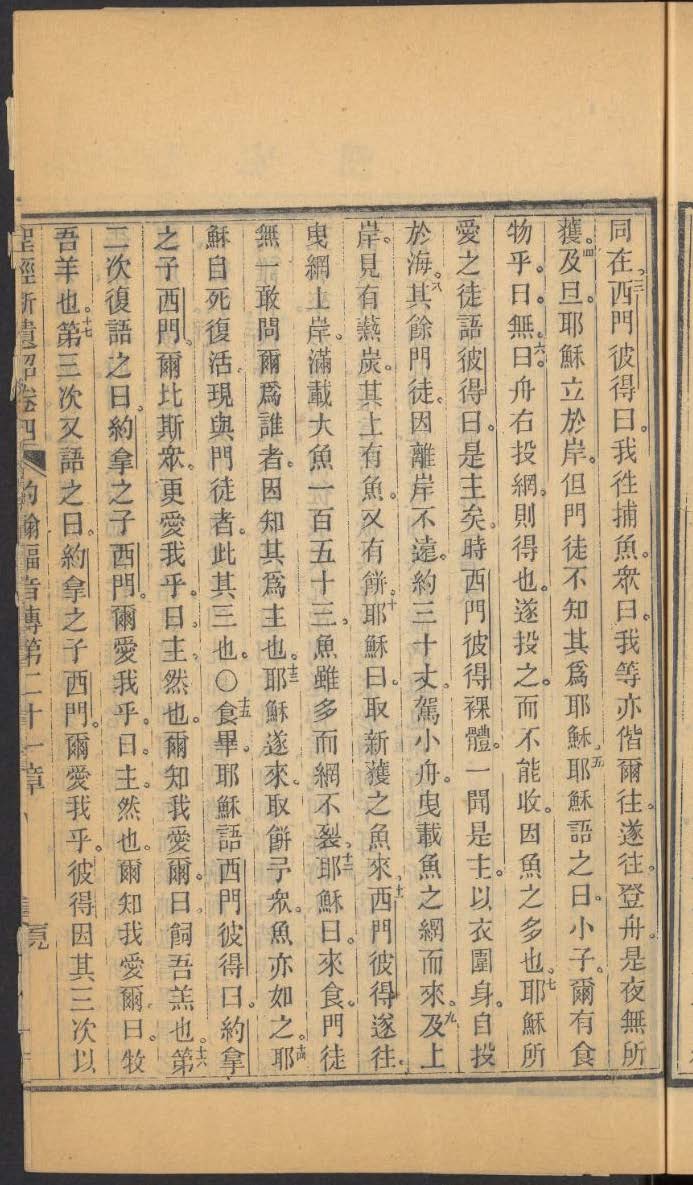 同在。三西門彼得曰。我徃捕魚。衆曰。我等亦偕爾往。遂往。登舟。是夜無所
獲。四及旦。耶穌立於岸。但門徒不知其爲耶穌。五耶穌語之曰。小子。爾有食
物乎。曰。無。六曰。舟右投網。則得也。遂投之。而不能收。因魚之多也。七耶穌所
愛之徒語彼得曰。是主矣。時西門彼得裸體。一聞是主。以衣圍身。自投
於海。八其餘門徒。因離岸不遠。約三十丈。駕小舟。曳載魚之網而來。九及上
岸。見有爇炭。其上有魚。又有餅。十耶穌曰。取新獲之魚來。十一西門彼得遂往。
曳網上岸。滿載大魚一百五十三。魚雖多而網不裂。十二耶穌曰。來食。門徒
無一敢問爾爲誰者。因知其爲主也。十三耶穌遂來。取餅予衆。魚亦如之。十四耶
穌自死復活。現與門徒者。此其三也。〇十五食畢。耶穌語西門彼得曰。約拿
之子西門。爾比斯衆。更愛我乎。曰。主。然也。爾知我愛爾。曰。飼吾羔也。十六第
二次復語之曰。約拿之子西門。爾愛我乎。曰。主。然也。爾知我愛爾。曰。牧
吾羊也。十七第三次又語之曰。約拿之子西門。爾愛我乎。彼得因其三次以
聖經新遺詔卷四 約翰福音傳第二十一章